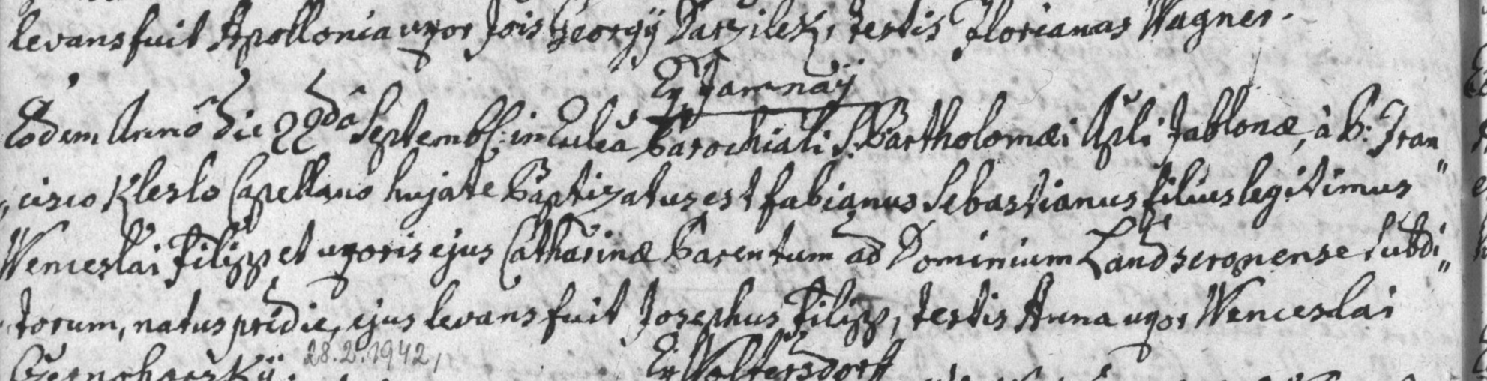 levans fuit Apollonia uxor Jois Georgÿ testis Florianus Wagner.
Ex Jamnaÿ
Eodem Anno Die 22da Septemb: in Eccl̃ia Parochiali S. Bartholomæi Apli Jablonæ, à P: Fran
„cisco Kleslo Capellano hujate Baptizatus est fabianus Sebastianus filius legitimus
Wenceslai Filipp et uxoris ejus Catharinæ Parentum ad Dominium Landscronense subdi„
torum, natus pridie, ejus levans fuit Josephus Filipp, testis Anna uxor Wenceslai
28.2.1942,
Ex Woltersdorff